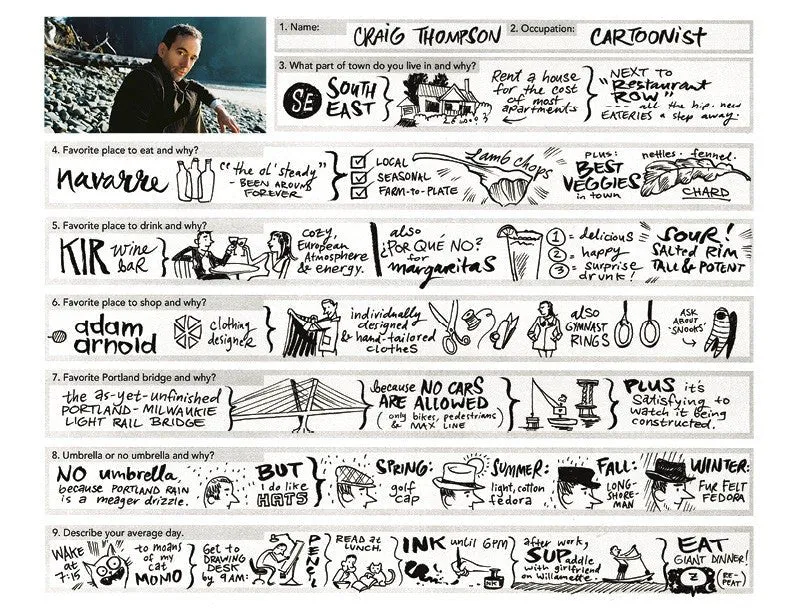 1. Name: CRAIG THOMPSON
2. Occupation: CARTOONIST
3. What part of town do you live in and why?
SE SOUTH EAST
Rent a house for the cost of most apartments
"NEXT TO Restaurant ROW"
--- all the hip, new EATERIES a step away.
4. Favorite place to eat and why?
navarre
"the ol' steady"
- BEEN AROUND FOREVER
LOCAL
SEASONAL
FARM-to-PLATE
Lamb chops
PLUS: BEST VEGGIES in town
nettles. fennel.
CHARD
5. Favorite place to drink and why?
KIR wine BAR
cozy, European Atmosphere & energy.
also ¿POR QUÉ NO? for margaritas
1 = delicious
2 = happy
3 = surprise drunk!
SOUR! SALTED RIM TALL & POTENT
6. Favorite place to shop and why?
adam arnold
clothing designer
individually designed & hand-tailored clothes
also GYMNAST RINGS
ASK ABOUT 'SNOOKS'
7. Favorite Portland bridge and why?
the as-yet-unfinished PORTLAND-MILWAUKIE LIGHT RAIL BRIDGE
because NO CARS ARE ALLOWED
(only bikes, pedestrians & MAX LINE)
PLUS it's satisfying to watch it being constructed.
8. Umbrella or no umbrella and why?
NO umbrella, because PORTLAND RAIN is a meager drizzle.
BUT I do like HATS
SPRING: golf cap
SUMMER: light, cotton fedora
FALL: LONG-SHORE-MAN
WINTER: FUR FELT FEDORA
9. Describe your average day.
WAKE at 7:15
to moans of my cat MOMO
Get to DRAWING DESK by 9AM:
PENCIL
READ at LUNCH.
INK until 6PM
INK
after work, SUP addle with girlfriend on Willamette.
EAT GIANT DINNER!
Z
(RE-PEAT)